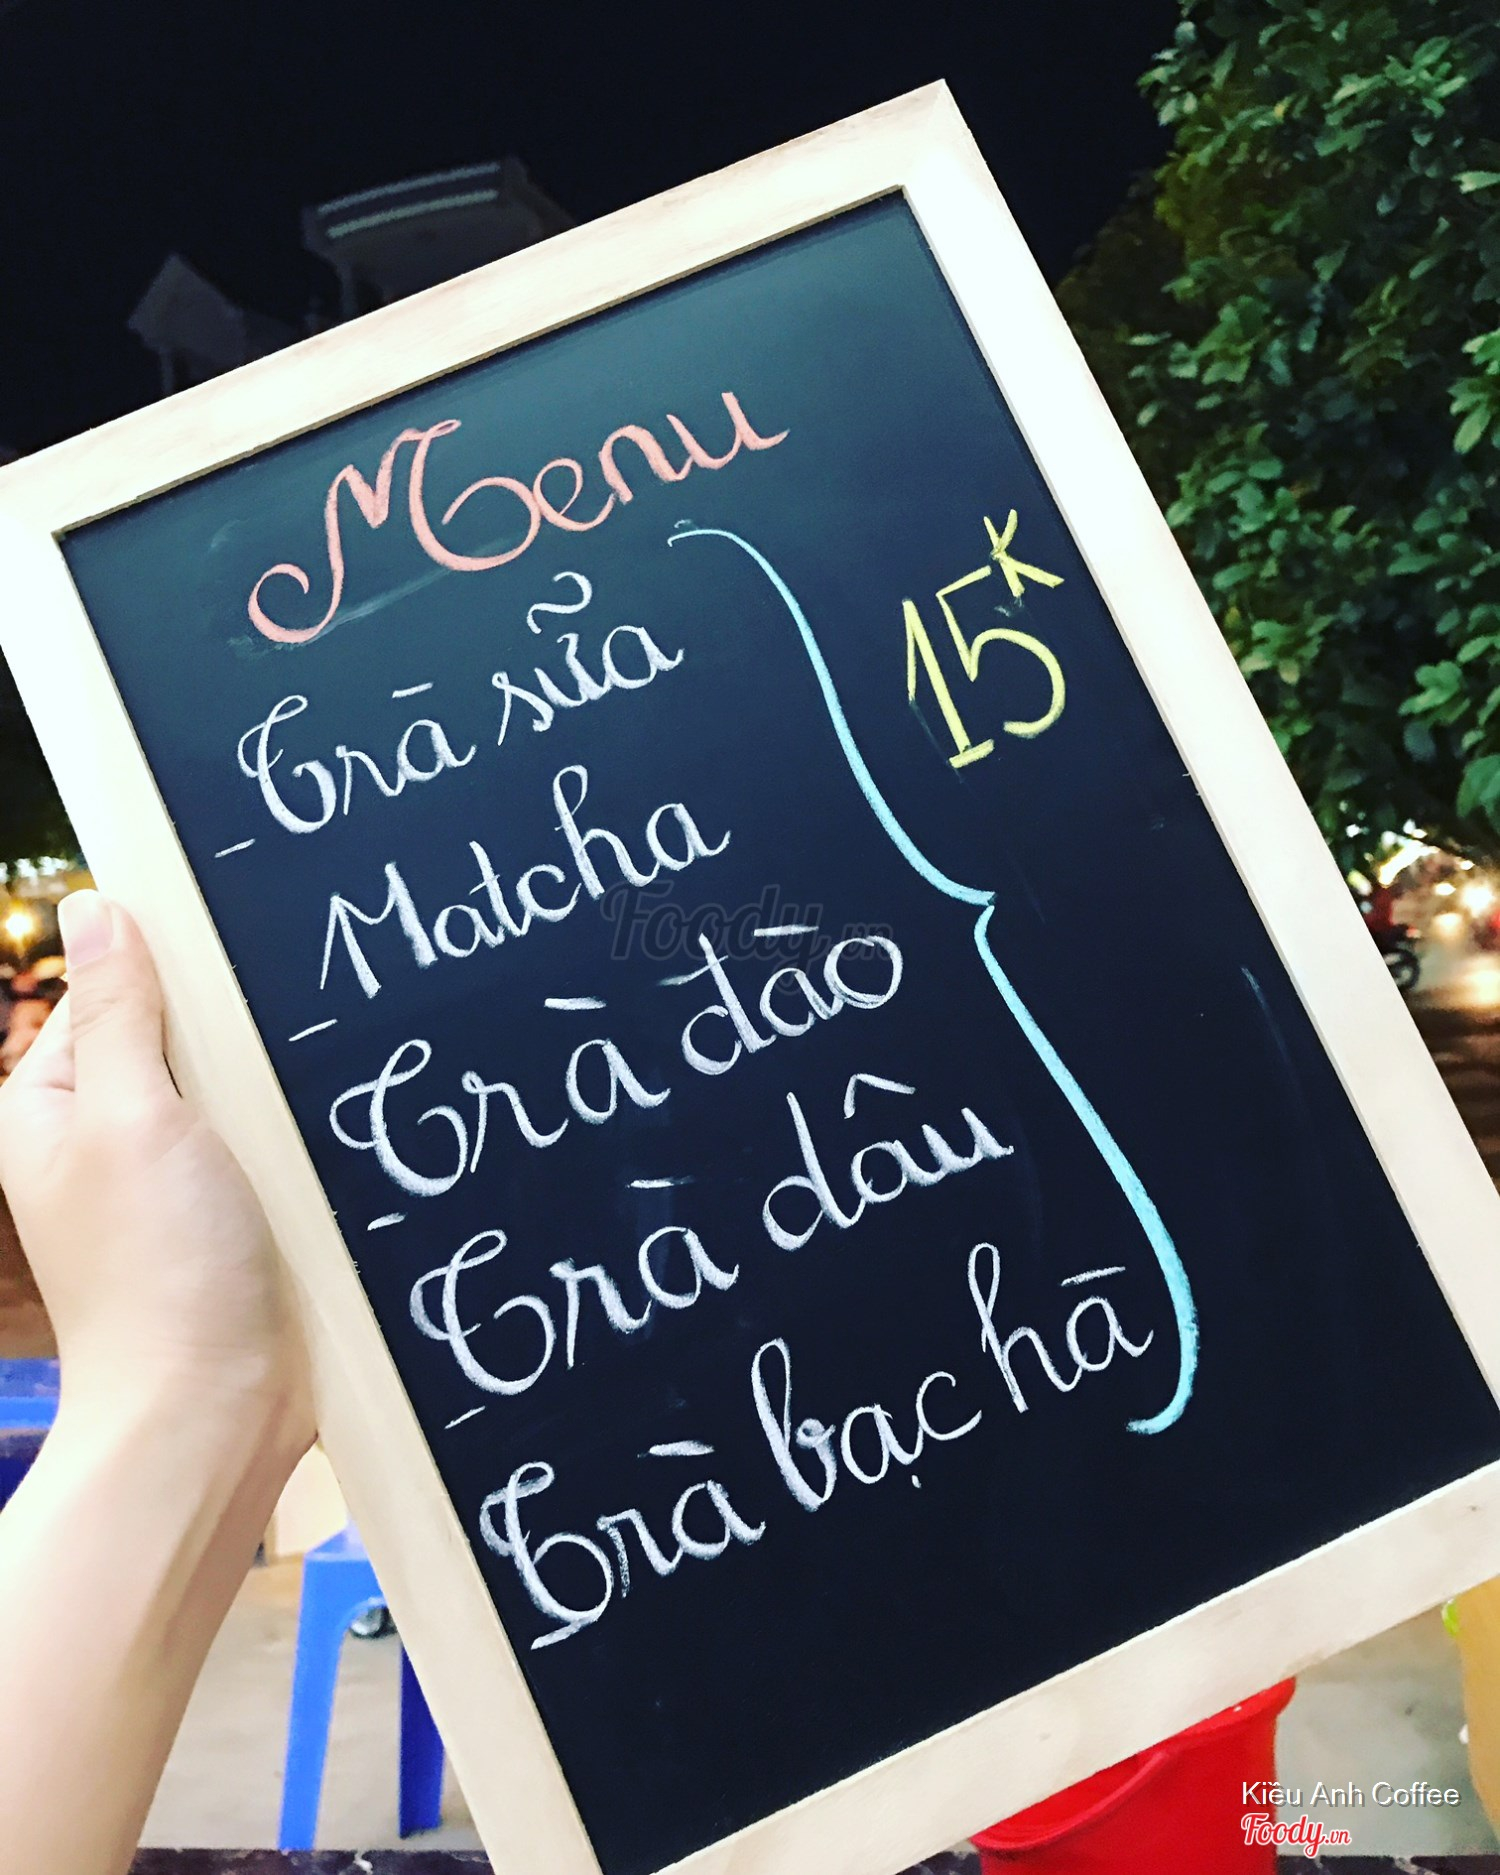 Menu
15K
- Trà sữa
- Matcha
- Trà đào
- Trà dâu
- Trà bạc hà
Foody.vn
Kiều Anh Coffee
Foody.vn